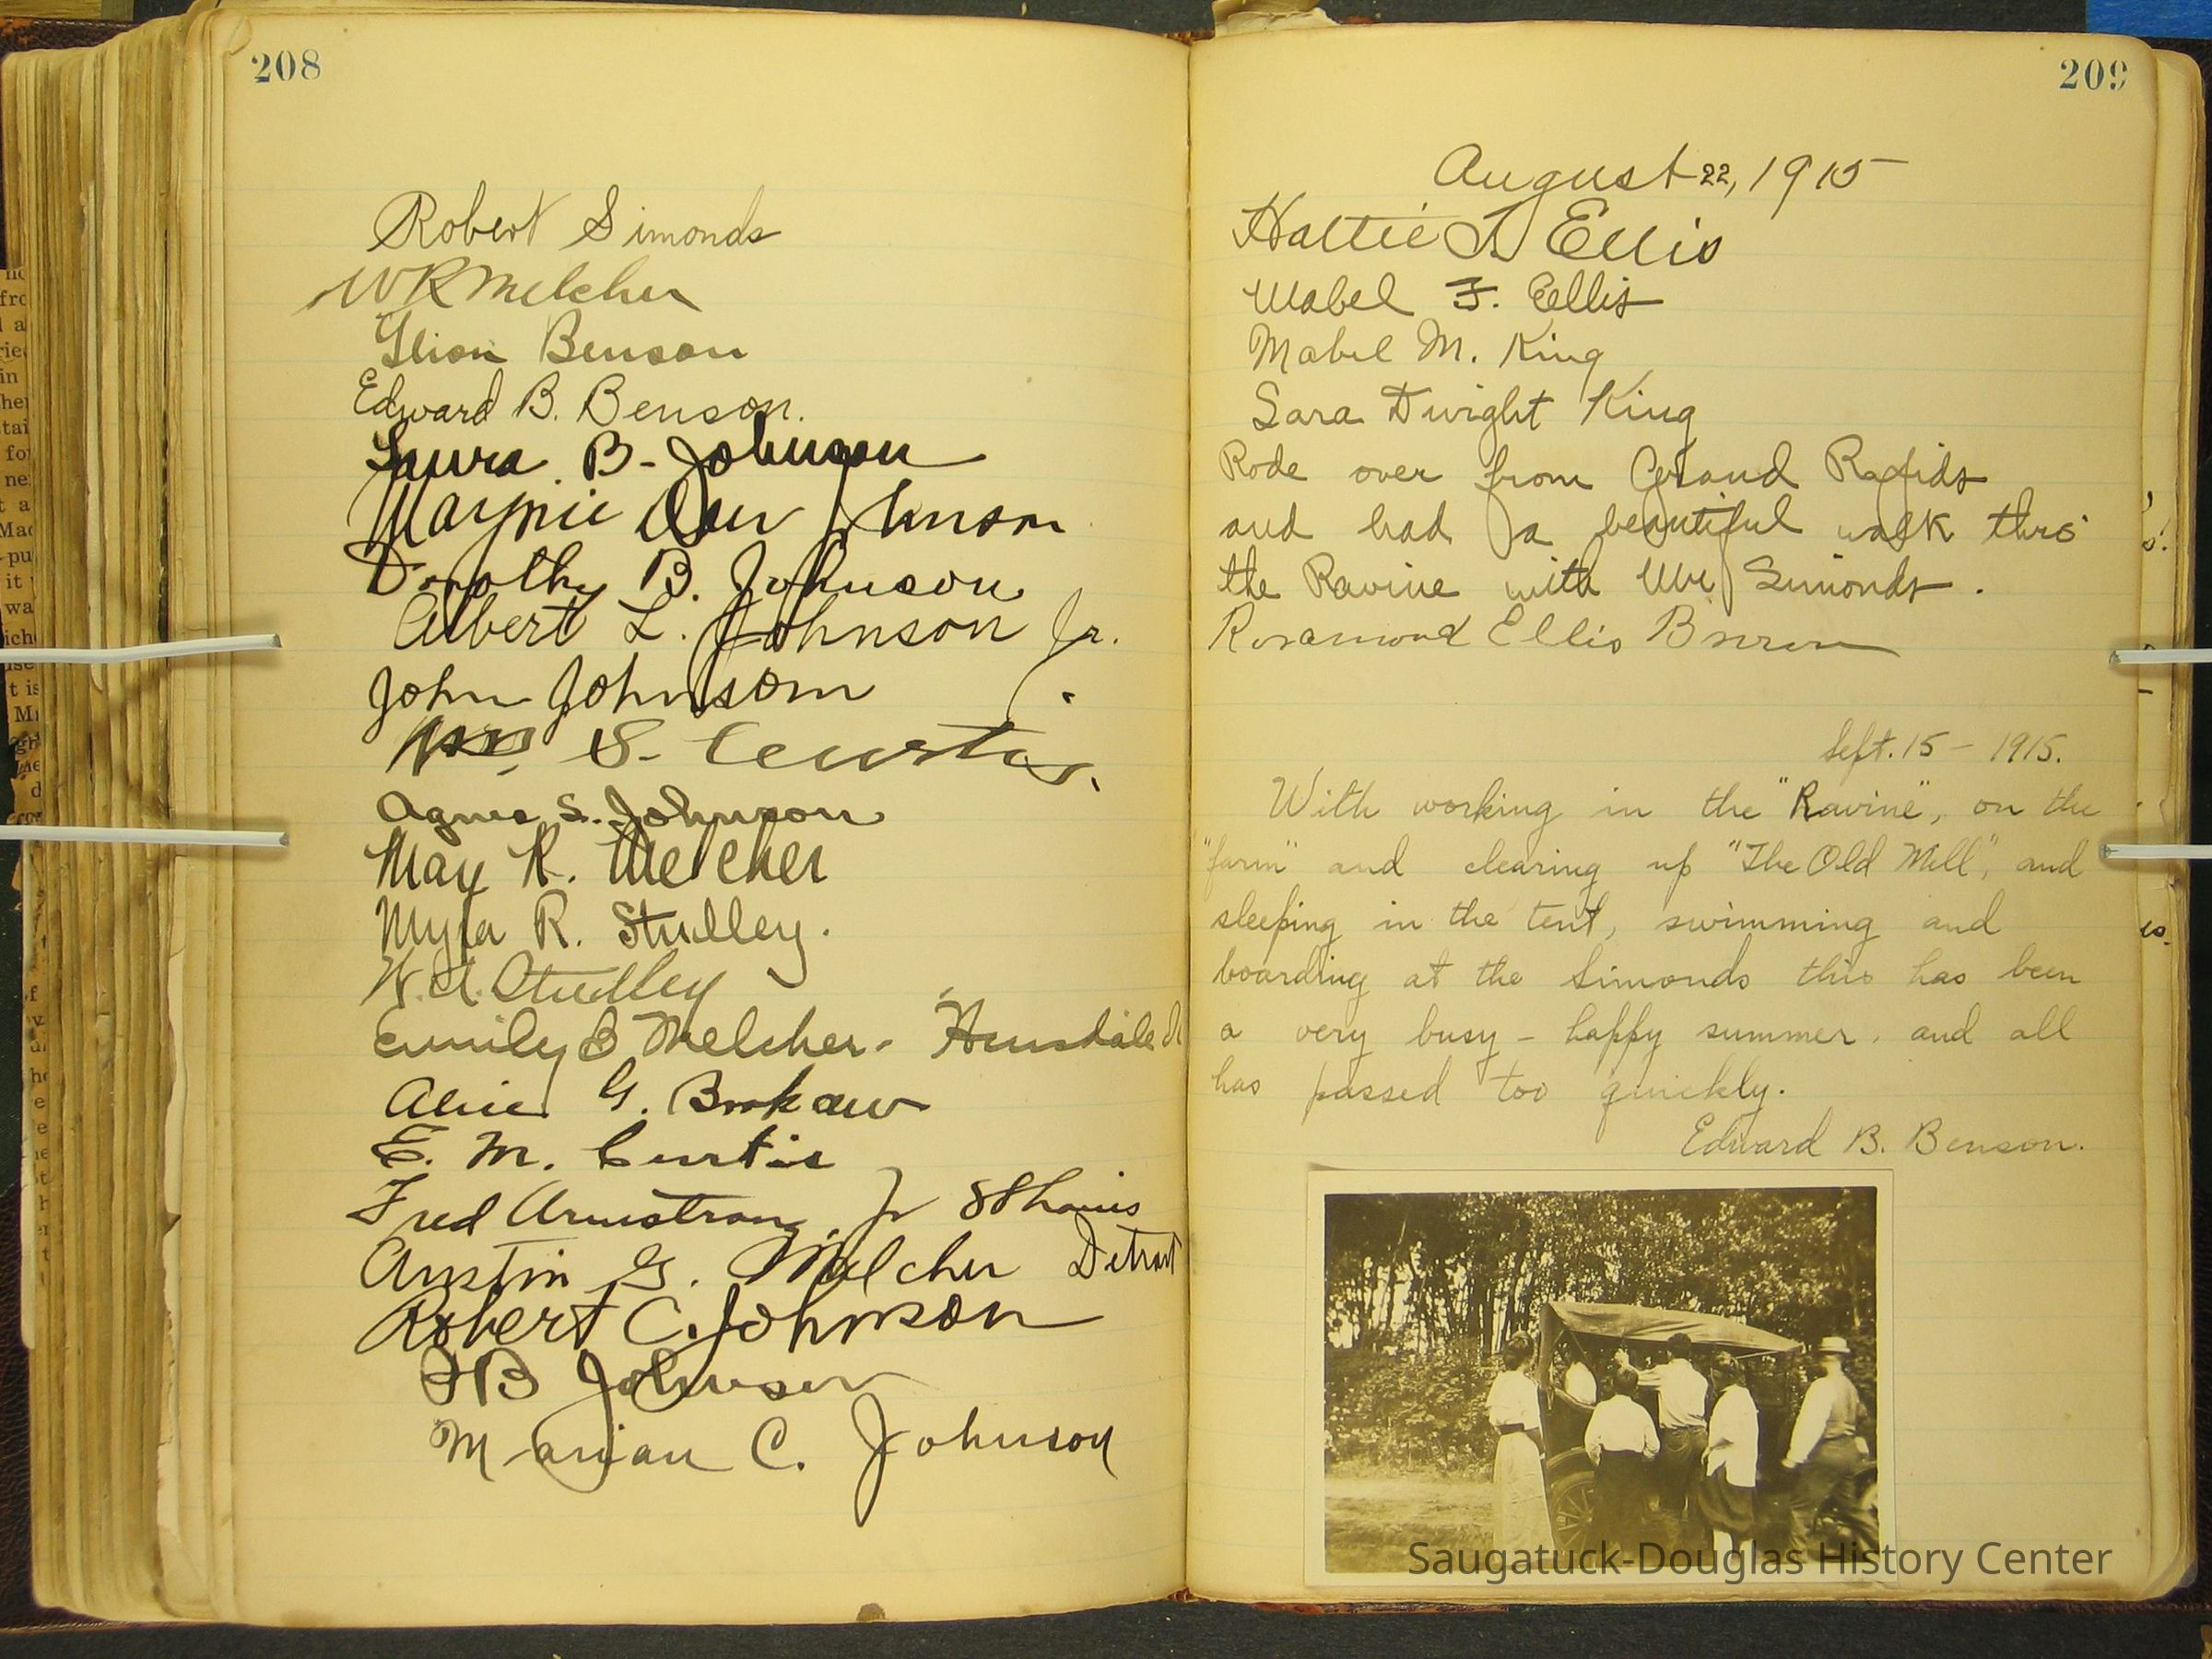 208
Robert Simonds
W R Melcher
Benson
Edward B. Benson.
Laura B. Johnson
Johnson
Dorothy B. Johnson
Albert L. Johnson Jr.
John Johnson
S. Curtis.
Agnes S. Johnson
May R. Melcher
Myra R. Studley.
W. A. Studley
Emily B Melcher - Hinsdale
Alice G. Brokaw
E. M. Curtis
Fred Armstrong Jr
Austin G. Melcher Detroit
Robert C. Johnson
Johnson
Marian C. Johnson
209
August 22, 1915
Hattie Ellis
Mabel F. Ellis
Mabel M. King
Sara Dwight King
Rode over from Grand Rapids
and had a beautiful walk thro'
the Ravine with Mr Simonds.
Rosamond Ellis
Sept. 15 - 1915.
With working in the "Ravine", on the
"farm" and clearing up "The Old Mill", and
sleeping in the tent, swimming and
boarding at the Simonds this has been
a very busy - happy summer, and all
has passed too quickly.
Edward B. Benson.
Saugatuck-Douglas History Center